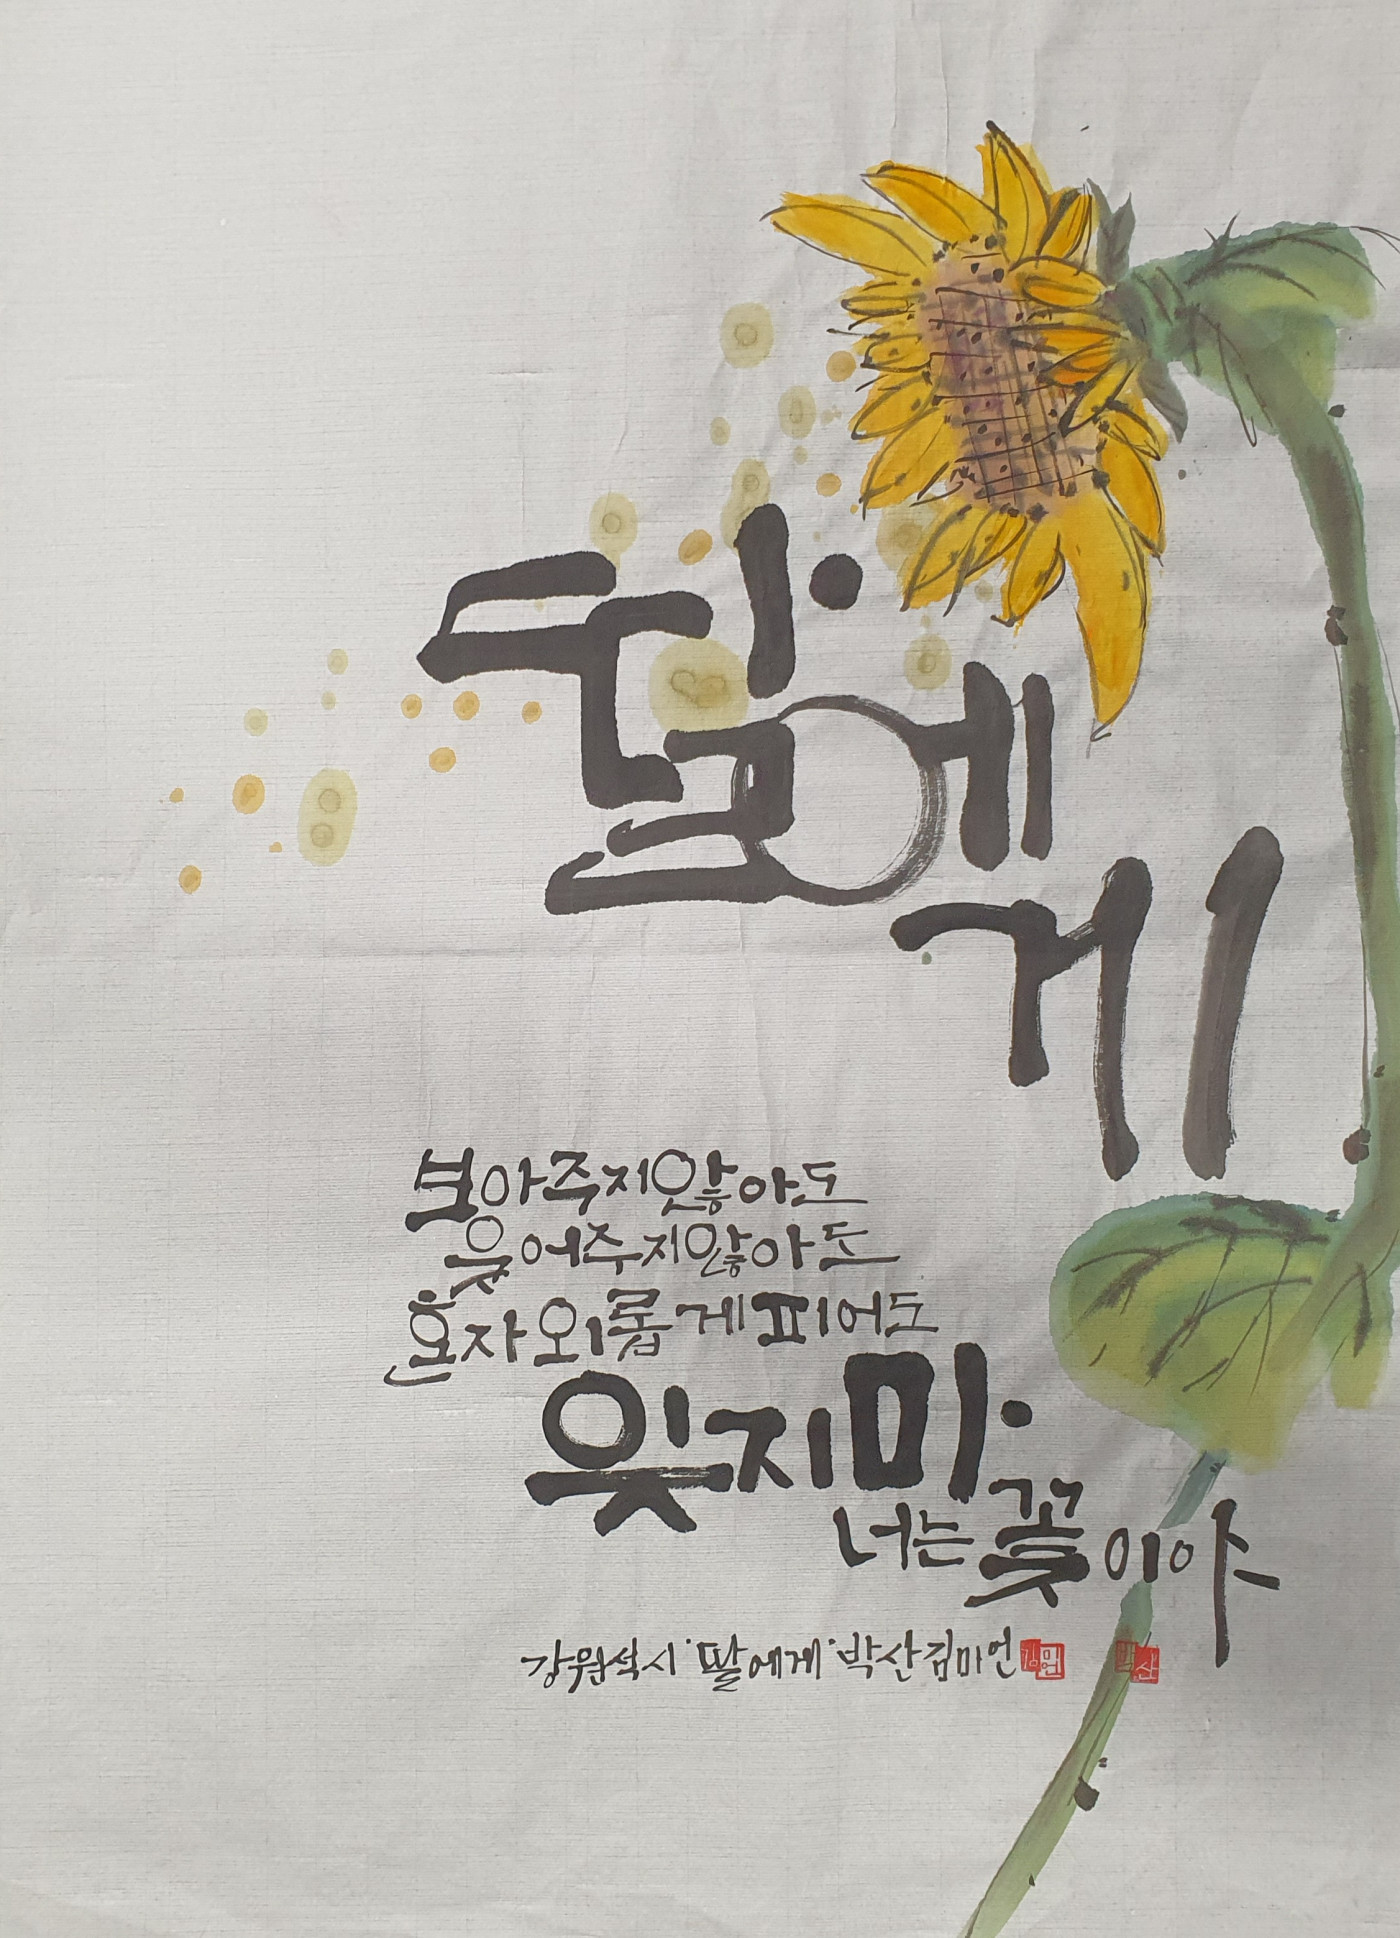 딸에
게
보아주지않아도
웃어주지않아도
혼자 외롭게 피어도
잊지마
너는 꽃이야
강원석 시 '딸에게' 박산 김미언